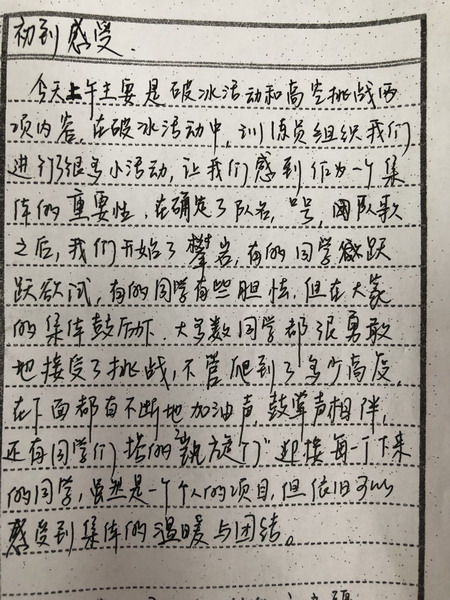 初到感受.
今天上午主要是破冰活动和高空挑战两
项内容,在破冰活动中,训练员组织我们
进行了很多小活动,让我们感到作为一个集
体的重要性,在确定了队名,口号,团队歌
之后,我们开始了攀岩,有的同学欲跃
跃欲试,有的同学有些胆怯,但在大家
的集体鼓励下,大多数同学都很勇敢
地接受了挑战,不管爬到了多少高度,
在下面都有不断地加油声,鼓掌声相伴,
还有同学们搭的"凯旋门"迎接每一个下来
的同学,虽然是一个个人的项目,但依旧可以
感受到集体的温暖与团结。